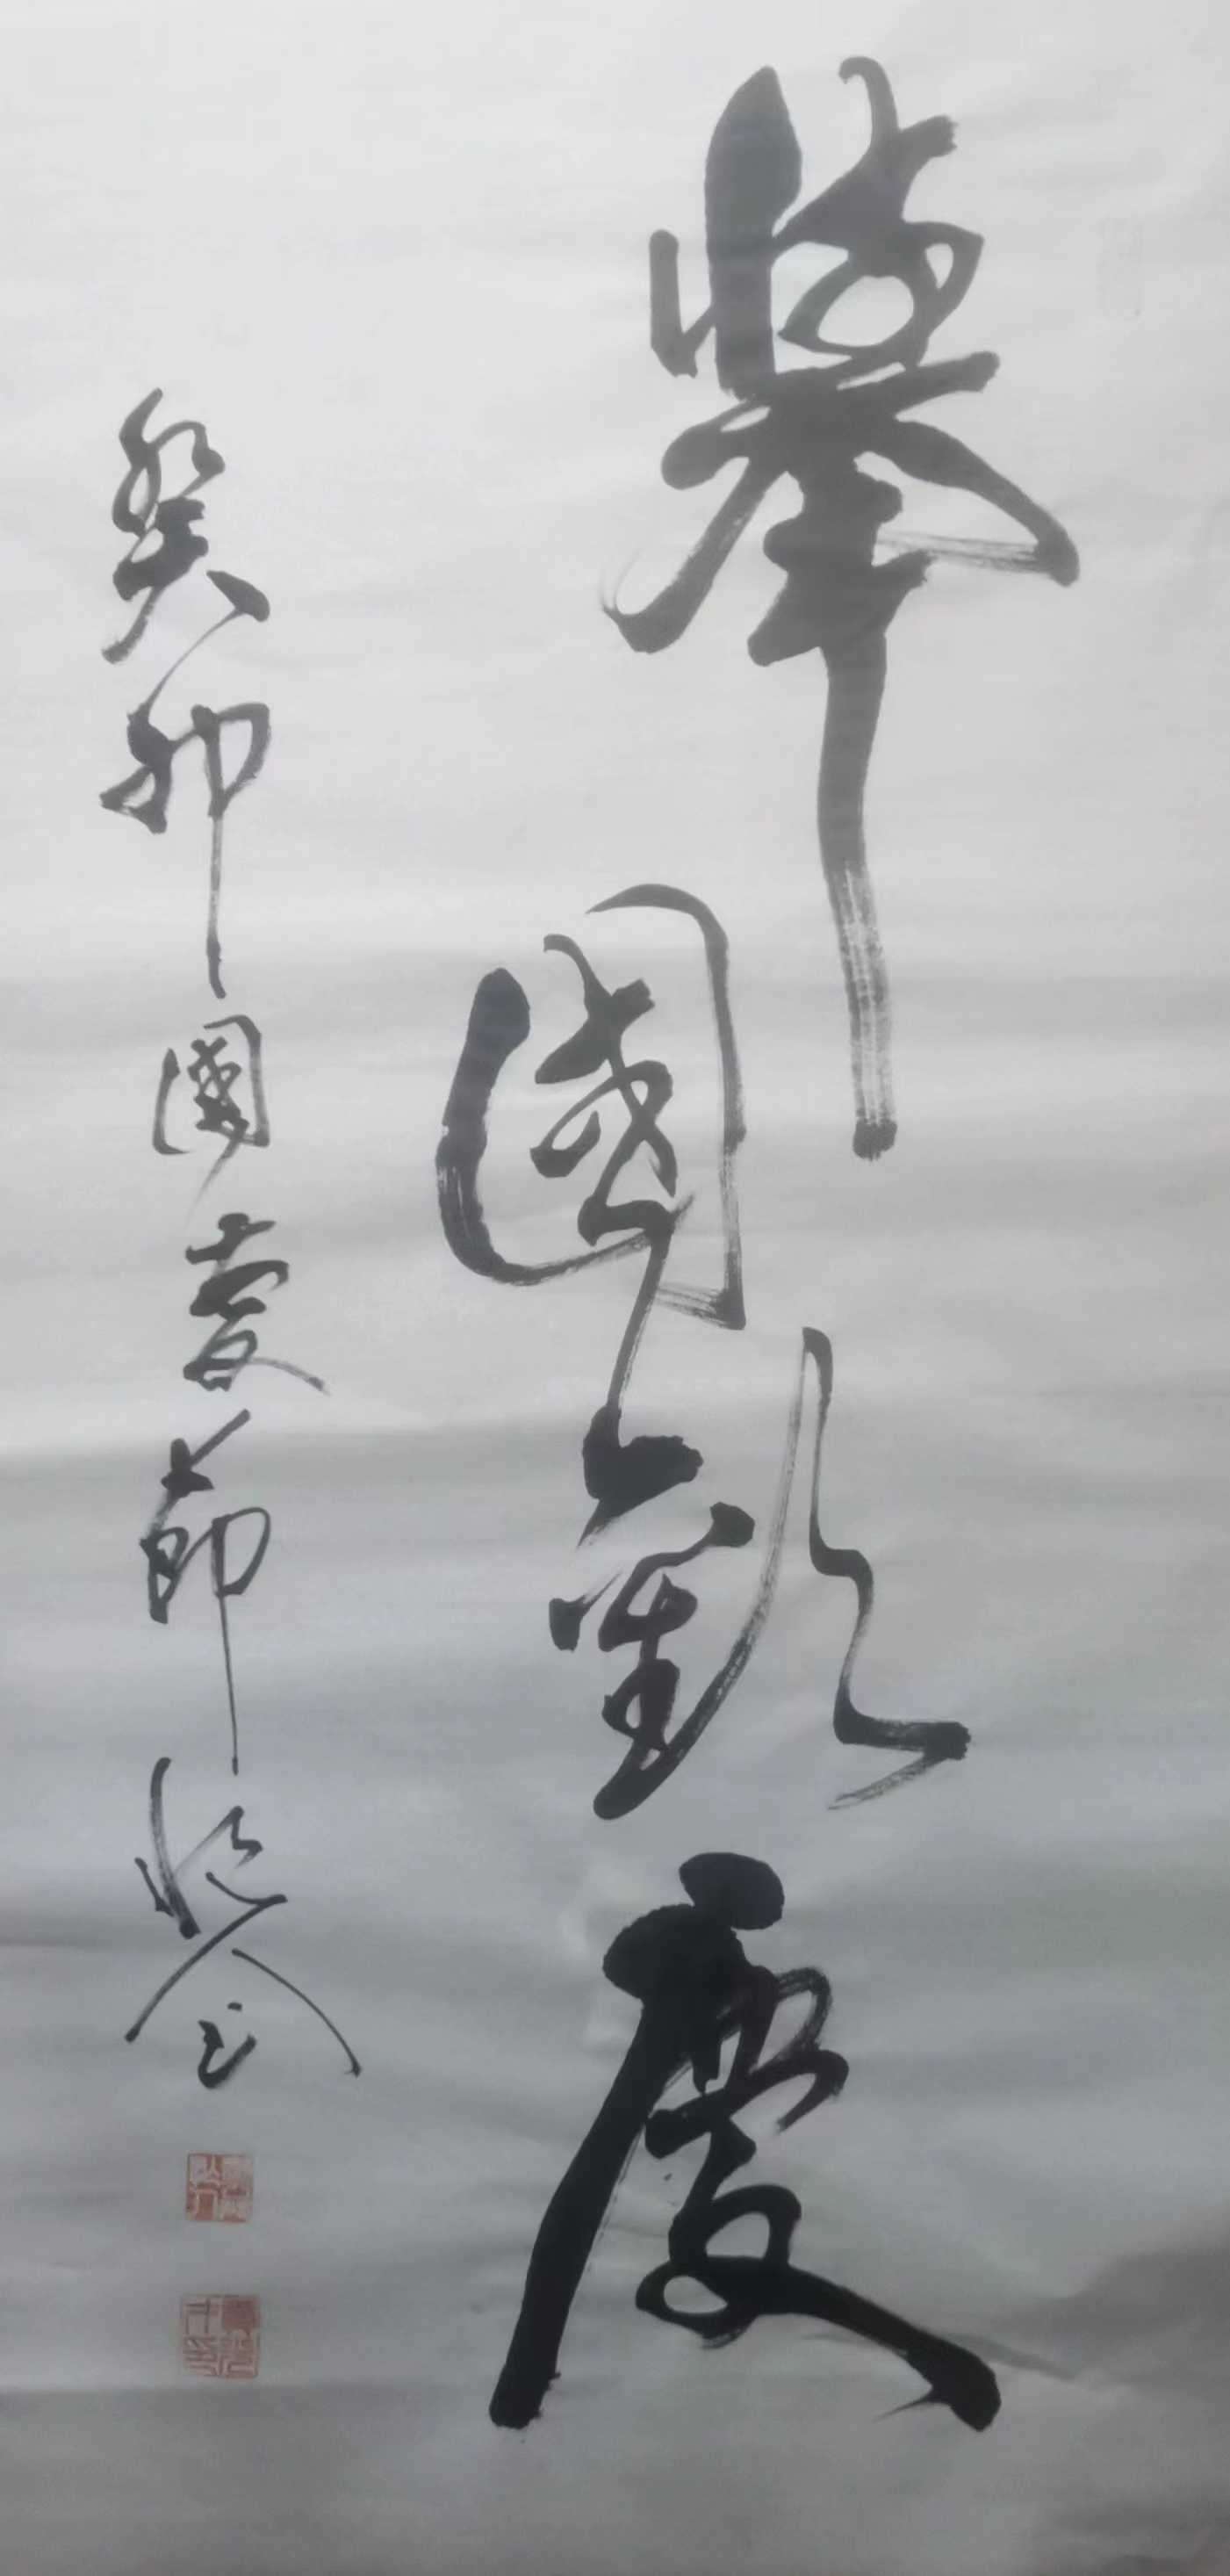 舉國歡慶
癸卯國慶節